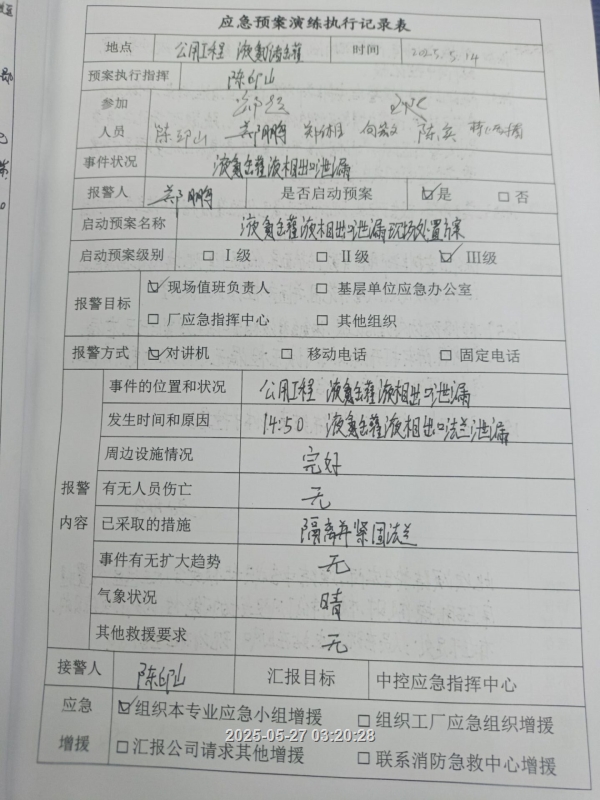 应急预案演练执行记录表
地点 公用工程 液氨储罐 时间 2025.5.14
预案执行指挥 陈印山
参加
人员 陈印山 郑鹏
事件状况 液氨储罐液相出口泄漏
报警人 郑鹏 是否启动预案 ☑是 □否
启动预案名称 液氨储罐液相出口泄漏现场处置方案
启动预案级别 □Ⅰ级 □Ⅱ级 ☑Ⅲ级
报警目标 ☑现场值班负责人 □基层单位应急办公室
□厂应急指挥中心 □其他组织
报警方式 ☑对讲机 □移动电话 □固定电话
报警内容
事件的位置和状况 公用工程 液氨储罐液相出口泄漏
发生时间和原因 14:50 液氨储罐液相出口法兰泄漏
周边设施情况 完好
有无人员伤亡 无
已采取的措施 隔离并紧固法兰
事件有无扩大趋势 无
气象状况 晴
其他救援要求 无
接警人 陈印山 汇报目标 中控应急指挥中心
应急 ☑组织本专业应急小组增援 □组织工厂应急组织增援
2025-05-27 03:20:28
增援 □汇报公司请求其他增援 □联系消防急救中心增援